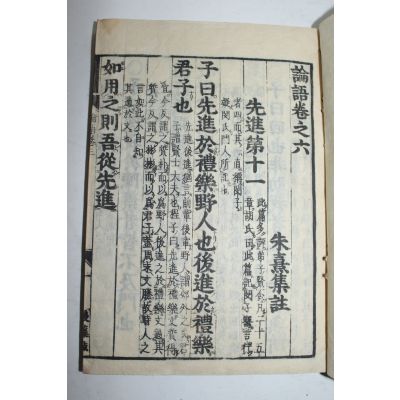 論語卷之六
朱熹集註
先進第十一
此篇多評弟子賢否凡二十五
章胡氏曰此篇記閔子騫言行
者四而其一直稱閔子
疑閔氏門人所記也
子曰先進於禮樂野人也後進於禮樂
君子也
先進後進猶言前輩後輩野人謂郊外之民君
子謂賢士大夫也程子曰先進於禮樂文質得
宜今反謂之質朴而以爲野人後進之於禮樂文過其
質今反謂之彬彬而以爲君子蓋周末文勝故時人之
言如此不自知
其過於文也
如用之則吾從先進